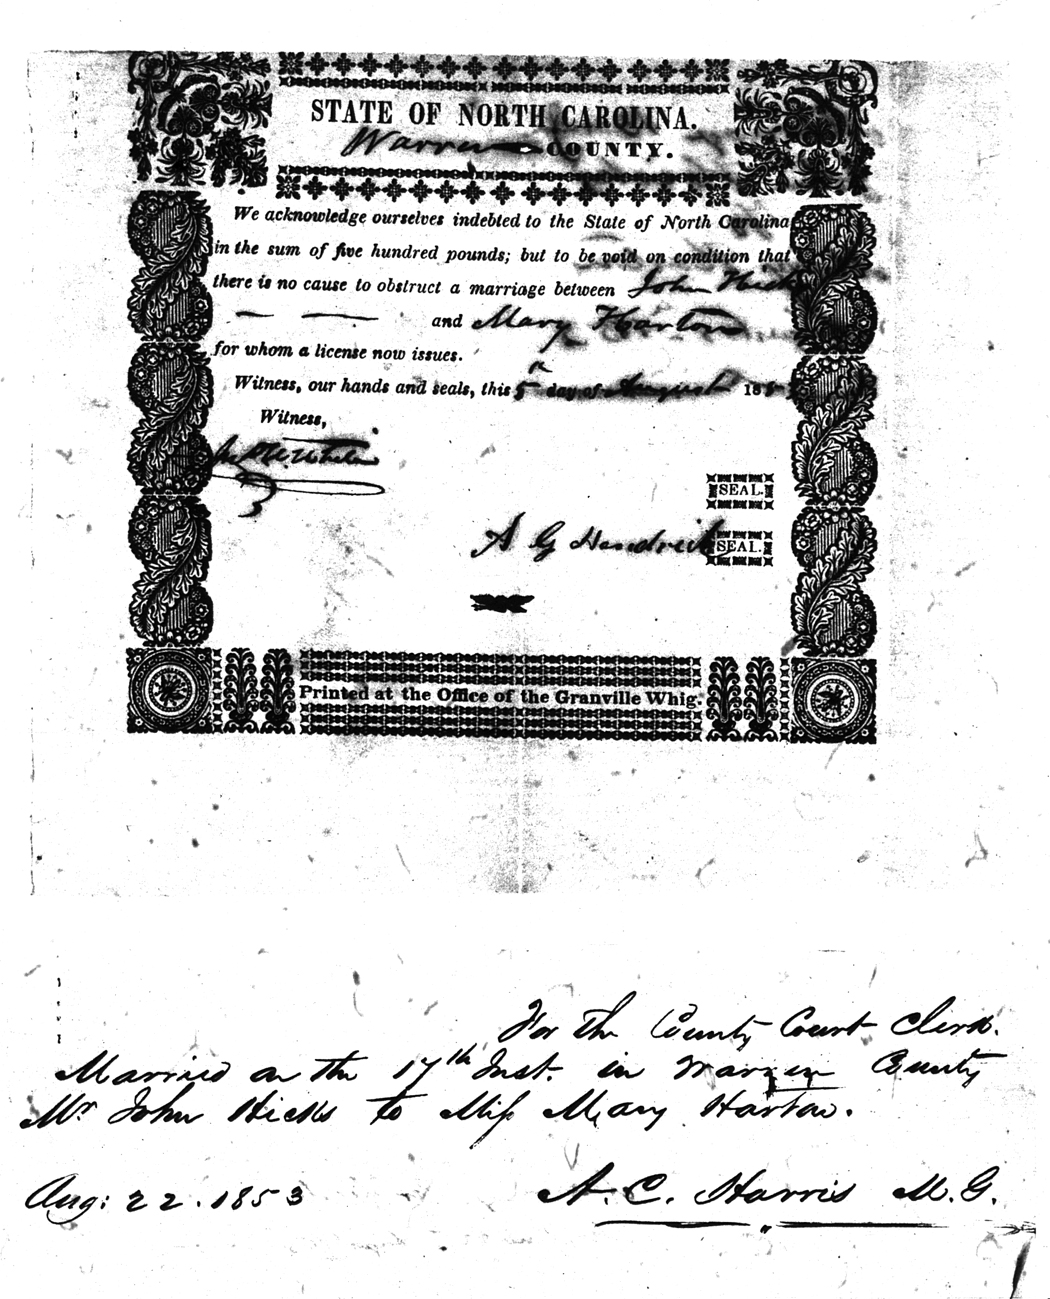 STATE OF NORTH CAROLINA.
Warren COUNTY.
We acknowledge ourselves indebted to the State of North Carolina
in the sum of five hundred pounds; but to be void on condition that
there is no cause to obstruct a marriage between John Hicks
and Mary Harton
for whom a license now issues.
Witness, our hands and seals, this 5th day of August 185
Witness,
SEAL.
A G Hendrick SEAL.
Printed at the Office of the Granville Whig.
For the County Court Clerk.
Married on the 17th Inst. in Warren County
Mr John Hicks to Miss Mary Harton.
Aug: 22. 1853 A. C. Harris M. G.